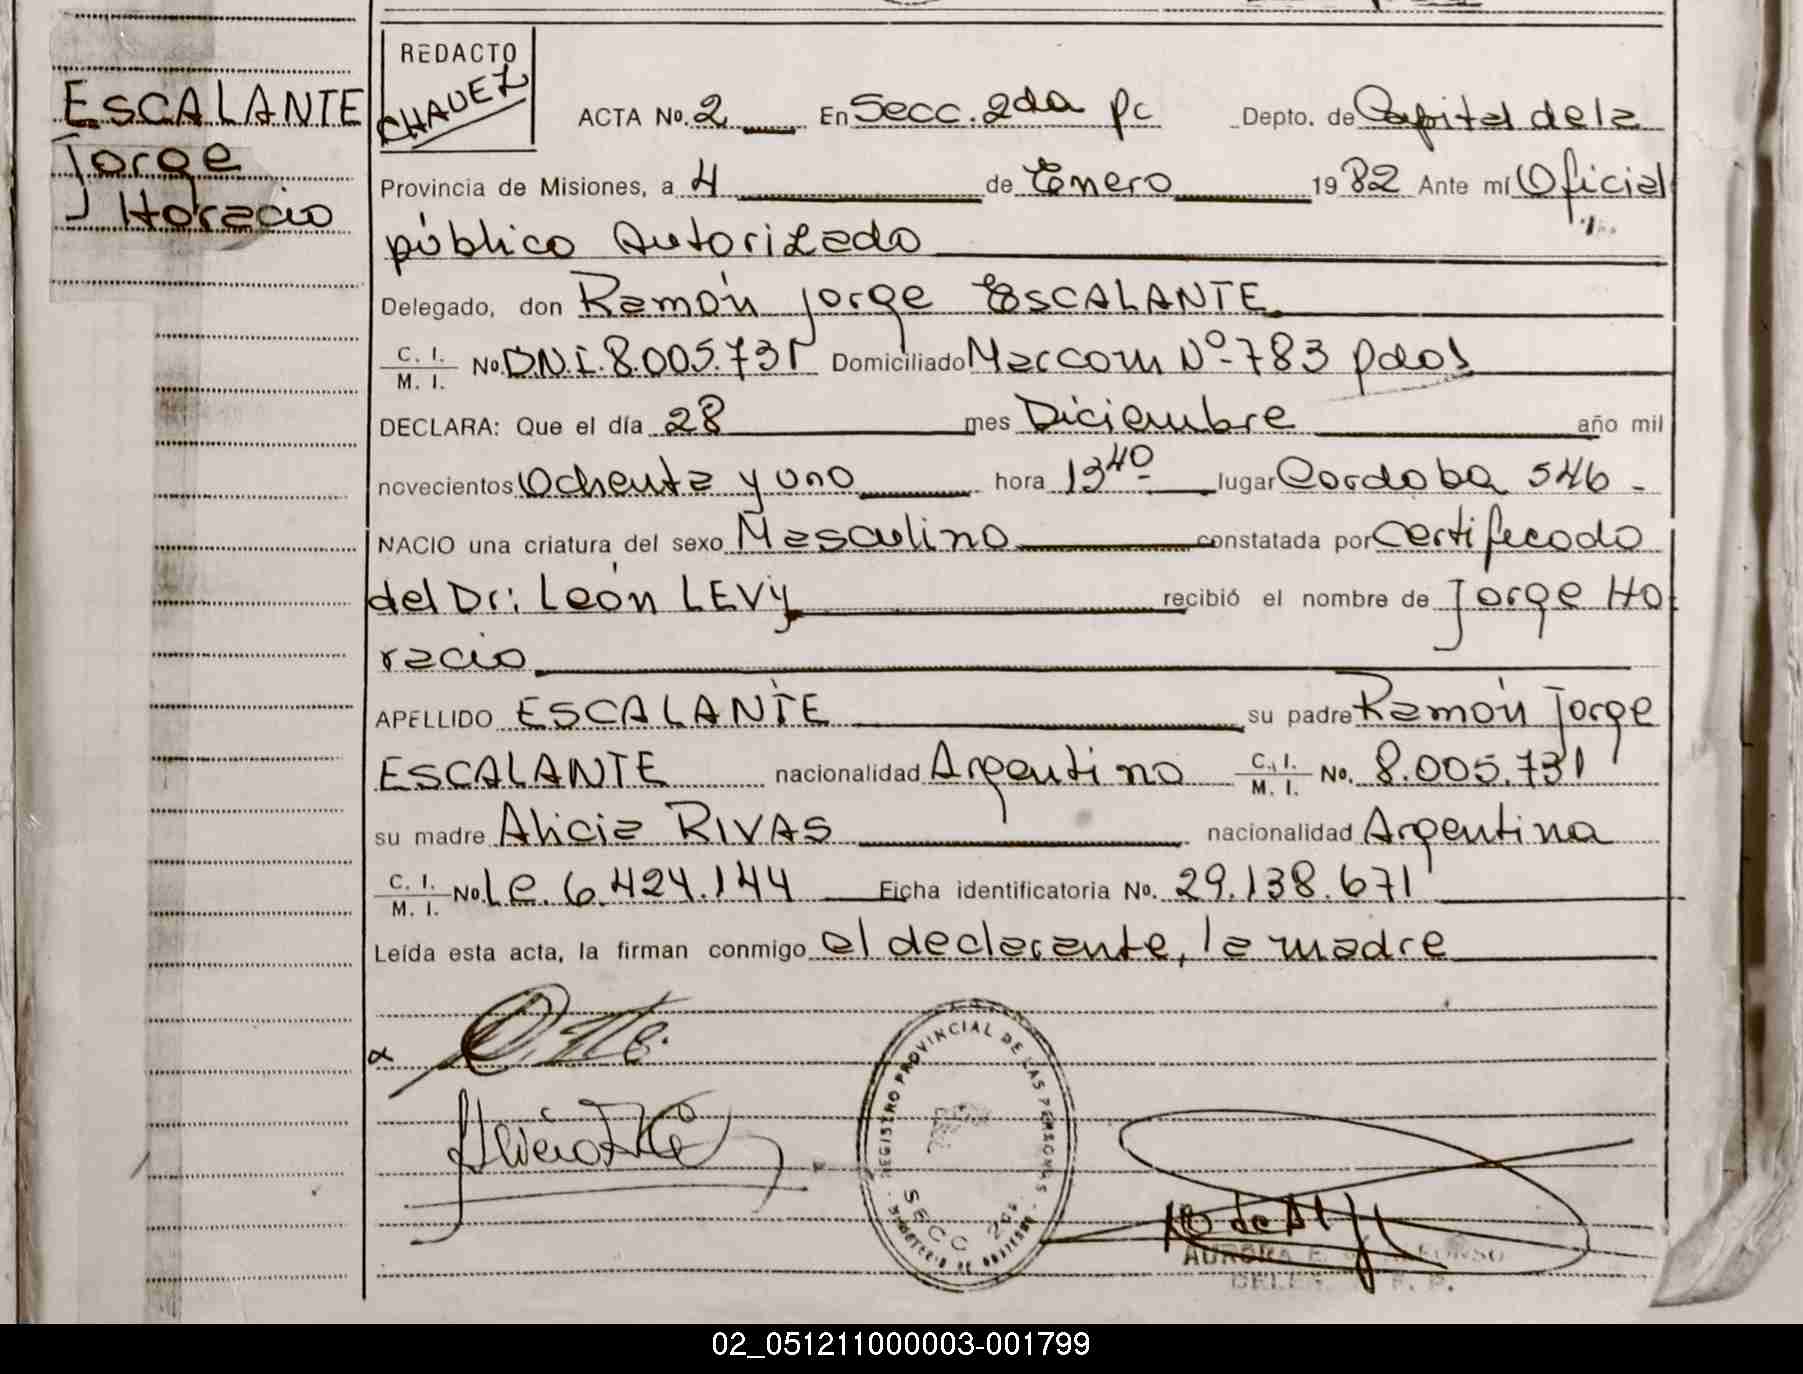 ESCALANTE
Jorge
Horacio
REDACTO
CHAVEZ
ACTA No. 2 En Secc. 2da pc Depto. de Capital de la
Provincia de Misiones, a 4 de Enero 1982 Ante mí Oficial
público Autorizado
Delegado, don Ramón Jorge ESCALANTE
C. I. / M. I. No. D.N.I. 8.005.731 Domiciliado Marconi Nº 783 pdas
DECLARA: Que el día 28 mes Diciembre año mil
novecientos Ochenta y uno hora 13 40 lugar Cordoba 546 -
NACIO una criatura del sexo Masculino constatada por Certificado
del Dr: León LEVY recibió el nombre de Jorge Ho
racio
APELLIDO ESCALANTE su padre Ramón Jorge
ESCALANTE nacionalidad Argentino C. I. / M. I. No. 8.005.731
su madre Alicia RIVAS nacionalidad Argentina
C. I. / M. I. No. L.e. 6.424.144 Ficha identificatoria No. 29.138.671
Leída esta acta, la firman conmigo el declarante, la madre
REGISTRO PROVINCIAL DE LAS PERSONAS
SECC 2da
AURORA E.
02_051211000003-001799